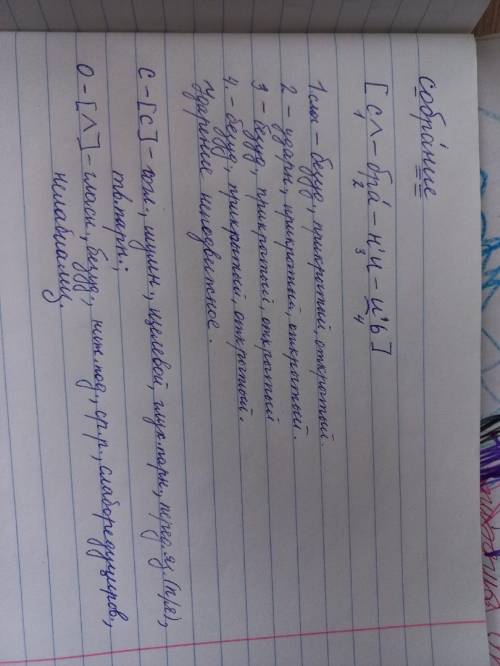 собра́ние
[сʌ-бра́-н'и-и̯'ь]
1 2 3 4
1 слог – безуд, прикрытый, открытый.
2 – ударн, прикрытый, открытый.
3 – безуд, прикрытый, открытый
4. – безуд, прикрытый, открытый.
Ударение неподвижное.
с – [с] – согл, шумн, щелевой, глух. парн, перед.яз. (п/я),
тв. парн;
о – [ʌ] – гласн, безуд, ниж. под, ср.р., слаборедуциров,
нелабиализ.